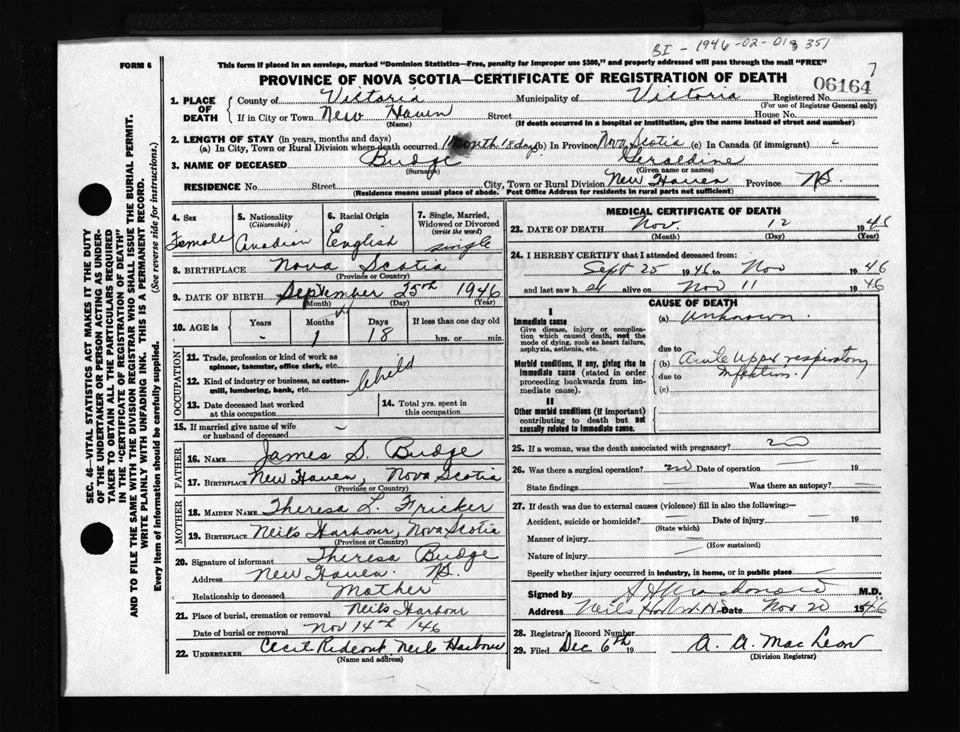 BI - 1946-02-018351
7
FORM 6
This form if placed in an envelope, marked "Dominion Statistics—Free, penalty for improper use $300," and properly addressed will pass through the mail "FREE"
PROVINCE OF NOVA SCOTIA—CERTIFICATE OF REGISTRATION OF DEATH
06164
SEC. 46—VITAL STATISTICS ACT MAKES IT THE DUTY
OF THE UNDERTAKER OR PERSON ACTING AS UNDER-
TAKER TO OBTAIN ALL THE PARTICULARS REQUIRED
IN THE "CERTIFICATE OF REGISTRATION OF DEATH"
AND TO FILE THE SAME WITH THE DIVISION REGISTRAR WHO SHALL ISSUE THE BURIAL PERMIT.
WRITE PLAINLY WITH UNFADING INK. THIS IS A PERMANENT RECORD.
Every item of information should be carefully supplied. (See reverse side for instructions.)
1. PLACE OF DEATH { County of Victoria Municipality of Victoria Registered No.
(For use of Registrar General only)
If in City or Town New Haven Street House No.
(Name) (If death occurred in a hospital or institution, give the name instead of street and number)
2. LENGTH OF STAY (in years, months and days)
(a) In City, Town or Rural Division where death occurred 1 Month 18 days (b) In Province Nova Scotia (c) In Canada (if immigrant) -
3. NAME OF DECEASED Budge Geraldine
(Surname) (Given name or names)
RESIDENCE No. Street City, Town or Rural Division New Haven Province N.S.
(Residence means usual place of abode. Post Office Address for residents in rural parts not sufficient)
4. Sex
Female
5. Nationality
(Citizenship)
Canadian
6. Racial Origin
English
7. Single, Married,
Widowed or Divorced
(write the word)
single
8. BIRTHPLACE Nova Scotia
(Province or Country)
9. DATE OF BIRTH September 25th 1946
(Month) (Day) (Year)
10. AGE in { Years - Months 1 Days 18 If less than one day old
hrs. or min.
OCCUPATION
11. Trade, profession or kind of work as
spinner, teamster, office clerk, etc.
12. Kind of industry or business, as cotton-
mill, lumbering, bank, etc.
child
13. Date deceased last worked
at this occupation
14. Total yrs. spent in
this occupation
15. If married give name of wife
or husband of deceased -
FATHER
16. NAME James S. Budge
17. BIRTHPLACE New Haven, Nova Scotia
(Province or Country)
MOTHER
18. MAIDEN NAME Theresa L. Fricker
19. BIRTHPLACE Neils Harbour, Nova Scotia
(Province or Country)
20. Signature of informant Theresa Budge
Address New Haven. N.S.
Relationship to deceased Mother
21. Place of burial, cremation or removal Neils Harbour
Date of burial or removal Nov 14th /46
22. UNDERTAKER Cecil Rideout Neils Harbour
(Name and address)
MEDICAL CERTIFICATE OF DEATH
23. DATE OF DEATH Nov. 12 1946
(Month) (Day) (Year)
24. I HEREBY CERTIFY that I attended deceased from:
Sept 25 1946 to Nov 1946
and last saw h er alive on Nov 11 1946
CAUSE OF DEATH
I
Immediate cause
Give disease, injury or complica-
tion which caused death, not the
mode of dying, such as heart failure,
asphyxia, asthenia, etc.
(a) Unknown.
due to
Morbid conditions, if any, giving rise to
immediate cause (stated in order
proceeding backwards from im-
mediate cause).
(b) Acute upper respiratory
due to infection.
(c)
II
Other morbid conditions (if important)
contributing to death but not
causally related to immediate cause.
25. If a woman, was the death associated with pregnancy? no
26. Was there a surgical operation? no Date of operation - 19
State findings Was there an autopsy? -
27. If death was due to external causes (violence) fill in also the following:—
Accident, suicide or homicide? - Date of injury - 19
(State which)
Manner of injury -
(How sustained)
Nature of injury -
Specify whether injury occurred in industry, in home, or in public place -
Signed by Macdonald M.D.
Address Neils Harbour N.S. Date Nov 20 1946
28. Registrar's Record Number
29. Filed Dec 6th 19 A. A. MacLeon
(Division Registrar)